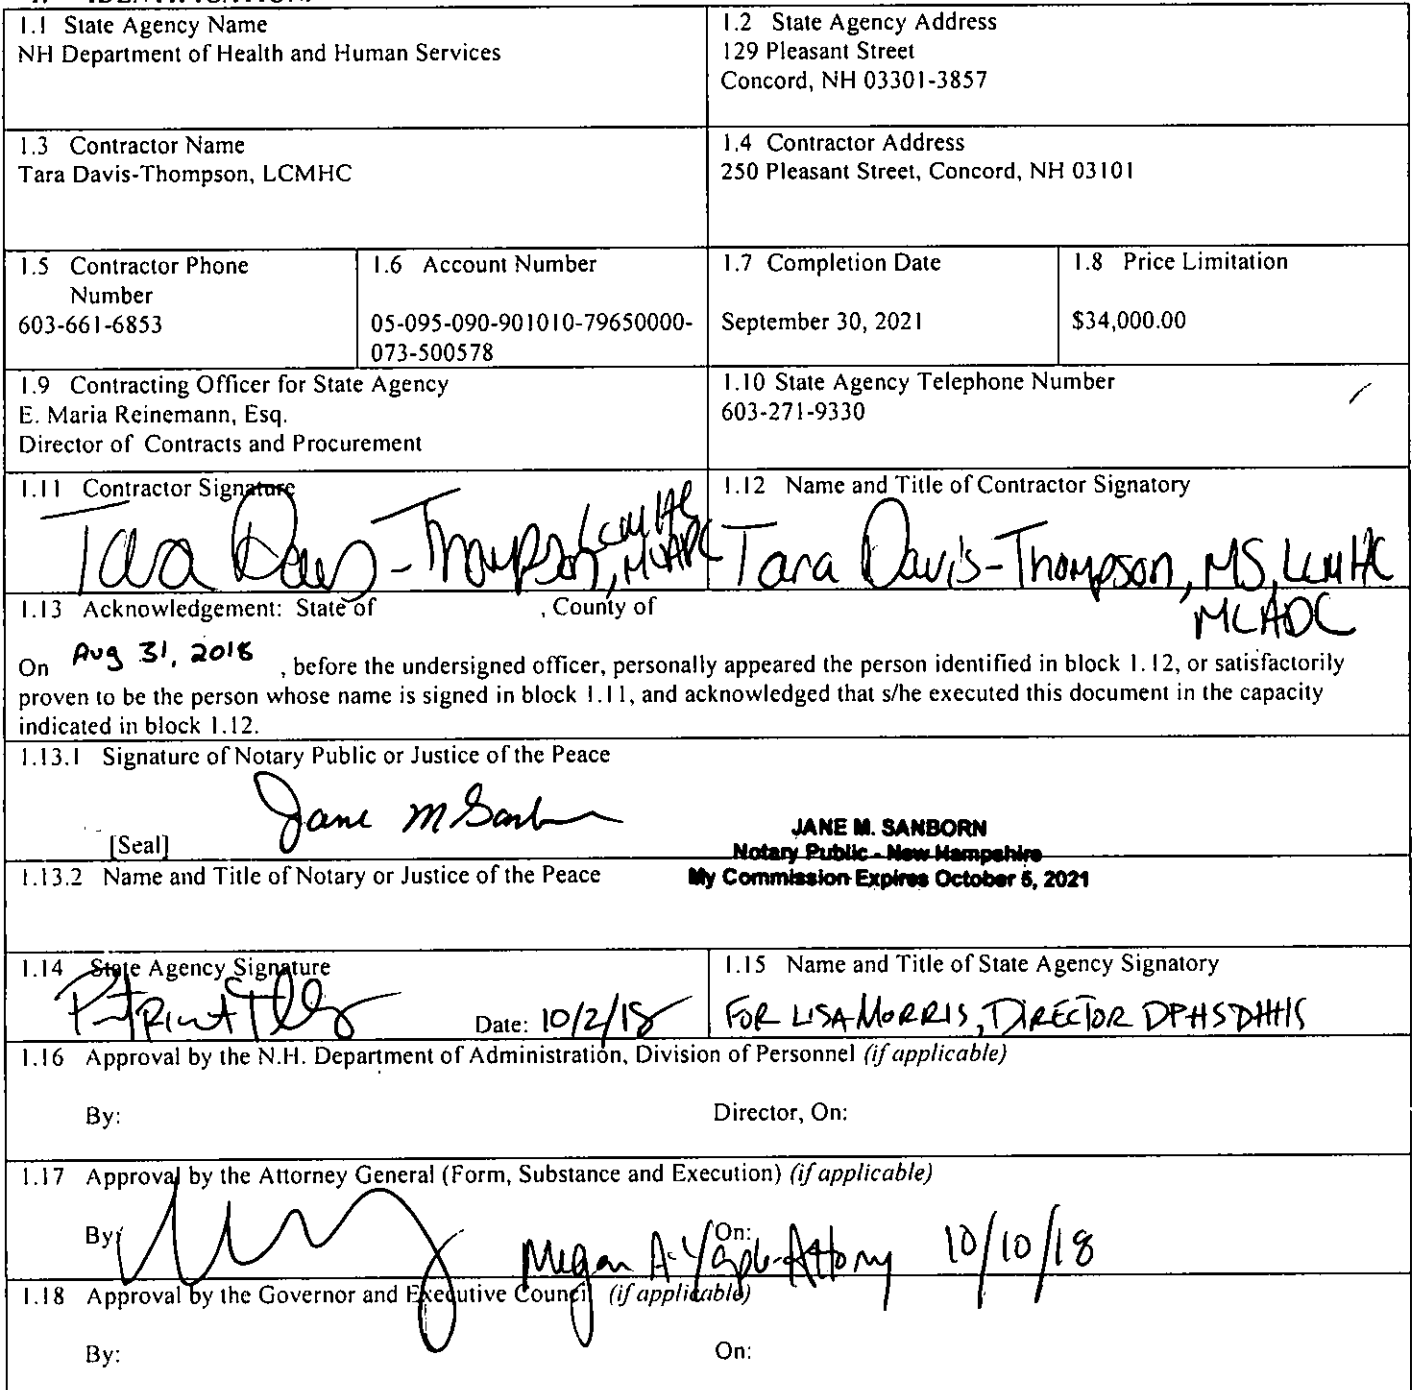 1. IDENTIFICATION.
1.1 State Agency Name
NH Department of Health and Human Services
1.2 State Agency Address
129 Pleasant Street
Concord, NH 03301-3857
1.3 Contractor Name
Tara Davis-Thompson, LCMHC
1.4 Contractor Address
250 Pleasant Street, Concord, NH 03101
1.5 Contractor Phone
Number
603-661-6853
1.6 Account Number
05-095-090-901010-79650000-
073-500578
1.7 Completion Date
September 30, 2021
1.8 Price Limitation
$34,000.00
1.9 Contracting Officer for State Agency
E. Maria Reinemann, Esq.
Director of Contracts and Procurement
1.10 State Agency Telephone Number
603-271-9330
1.11 Contractor Signature
Tara Davis-Thompson, LCMHC
MLADC
1.12 Name and Title of Contractor Signatory
Tara Davis-Thompson, MS, LCMHC
MLADC
1.13 Acknowledgement: State of , County of
On Aug 31, 2018 , before the undersigned officer, personally appeared the person identified in block 1.12, or satisfactorily
proven to be the person whose name is signed in block 1.11, and acknowledged that s/he executed this document in the capacity
indicated in block 1.12.
1.13.1 Signature of Notary Public or Justice of the Peace
Jane M Sanborn
[Seal]
JANE M. SANBORN
Notary Public - New Hampshire
My Commission Expires October 5, 2021
1.13.2 Name and Title of Notary or Justice of the Peace
1.14 State Agency Signature
Date: 10/2/18
1.15 Name and Title of State Agency Signatory
FOR LISA MORRIS, DIRECTOR DPHS DHHS
1.16 Approval by the N.H. Department of Administration, Division of Personnel (if applicable)
By: Director, On:
1.17 Approval by the Attorney General (Form, Substance and Execution) (if applicable)
By: On:
Megan A. Yaple-Attorny 10/10/18
1.18 Approval by the Governor and Executive Council (if applicable)
By: On: